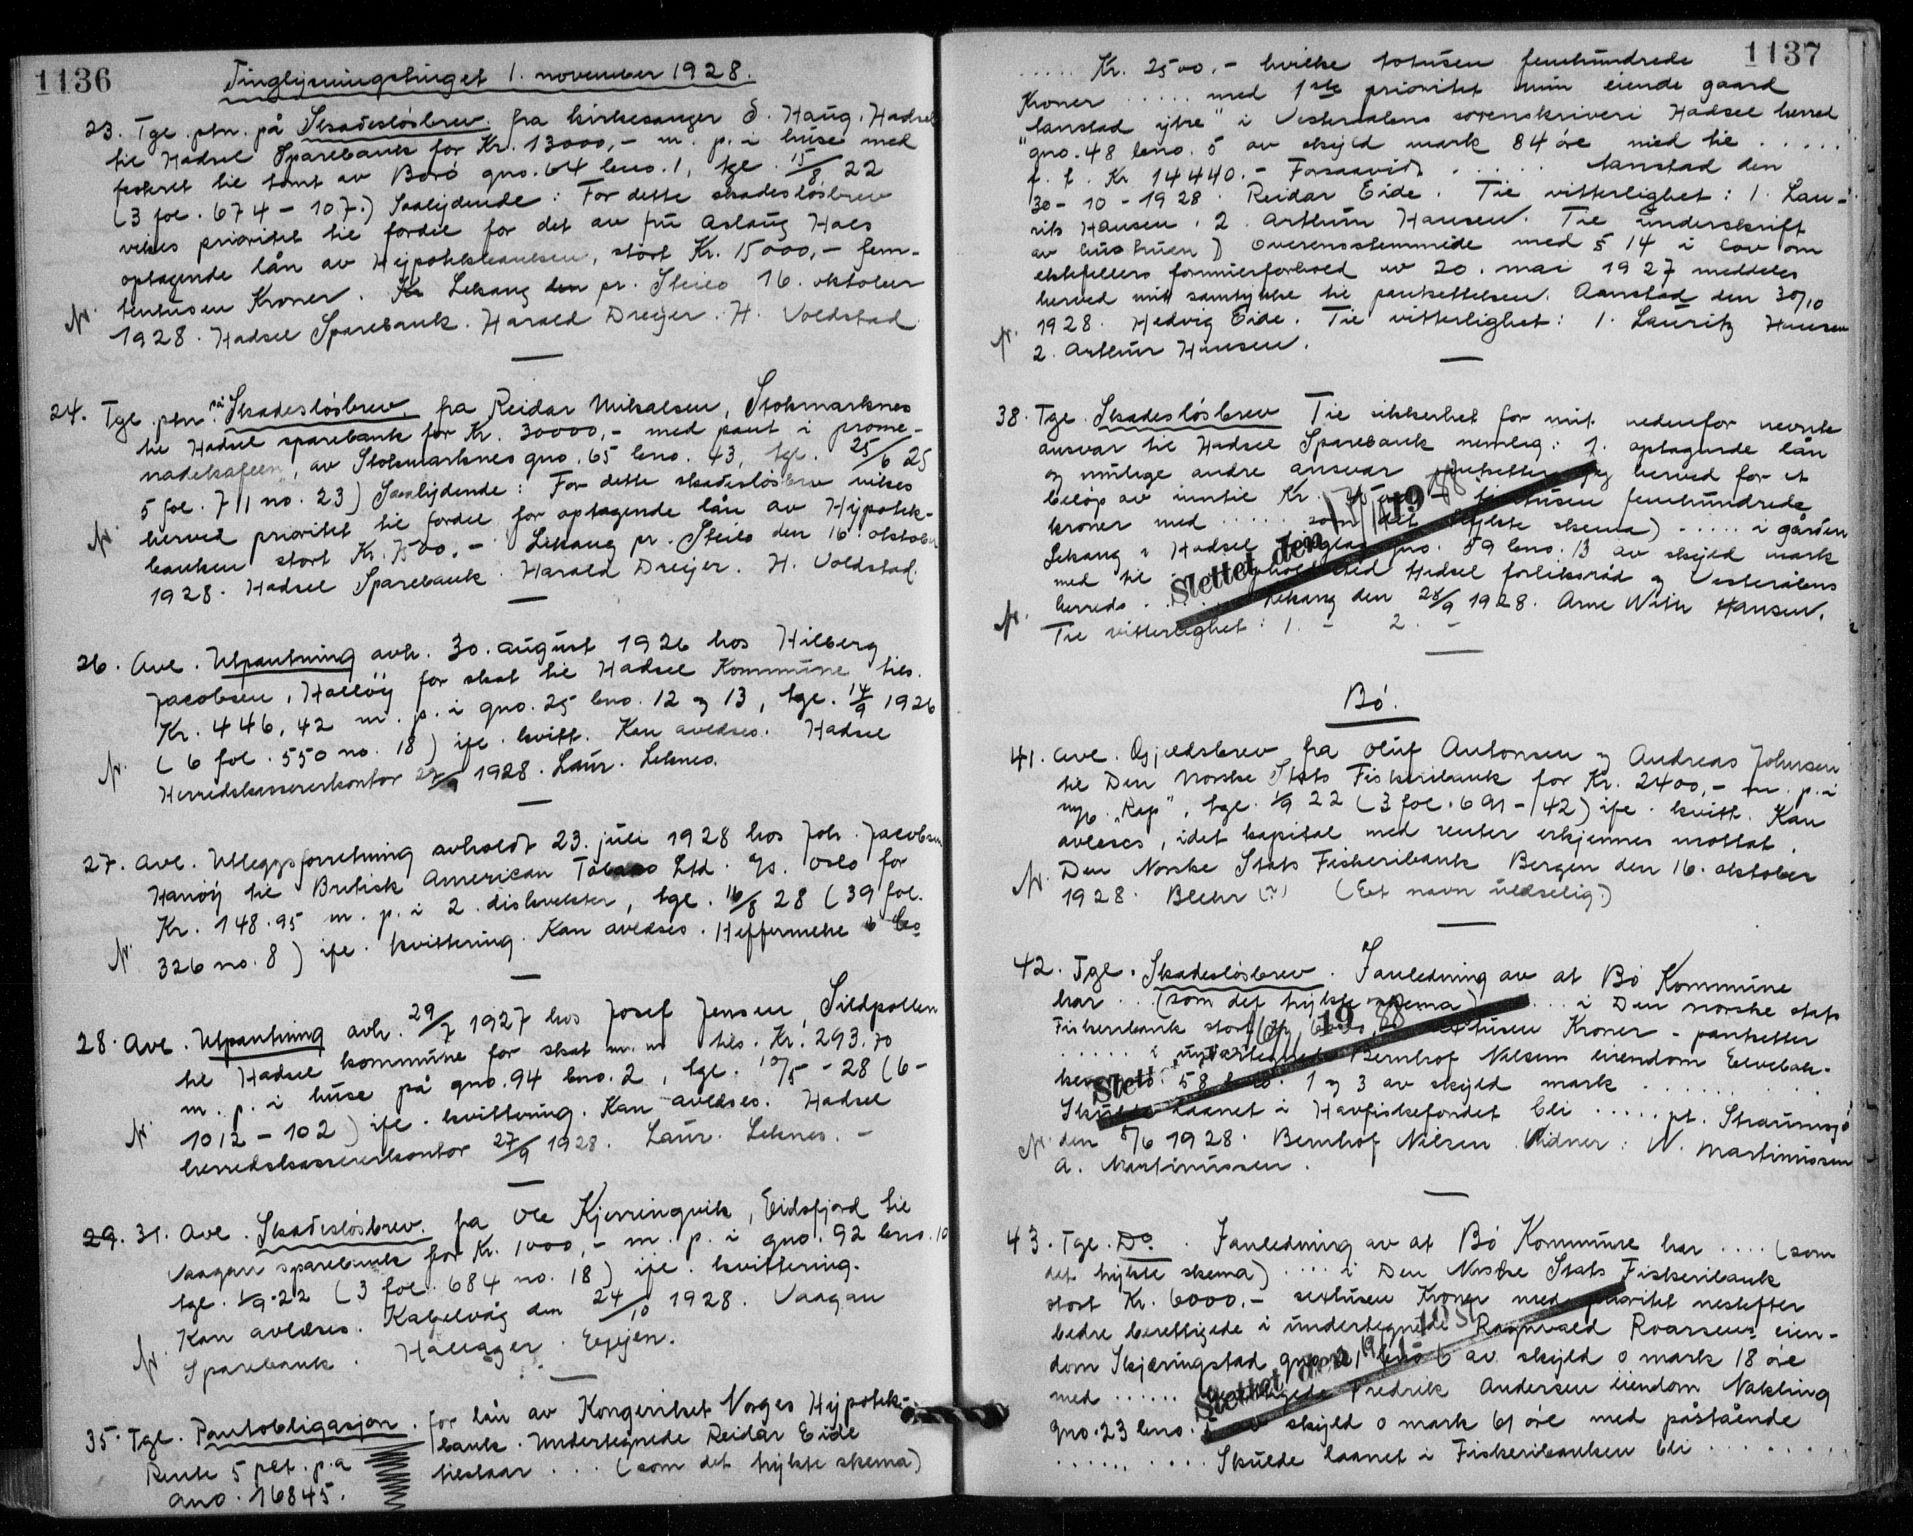 1136
Tinglysningstinget 1. november 1928.
23. Tgl. ptn. på Skadesløsbrev fra kirkesanger O. Haug, Hadsel
til Hadsel Sparebank for Kr. 13000,- m. p. i huse med
festeret til tomt av Borø gno. 64 bno. 1, tgl. 15/8 22
(3 fol. 674 - 107.) Saalydende: For dette skadesløsbrev
vikes prioritet til fordel for det av fru Aslaug Haes
optagende lån av Hypotekbanken, stort Kr. 15000,- fem-
tentusen Kroner. Lekang pr. Steilo 16. oktober
1928. Hadsel Sparebank. Harald Dreyer. H. Voldstad.
24. Tgl. ptn. på Skadesløsbrev fra Reidar Mikalsen, Stokmarknes
til Hadsel sparebank for Kr. 30000,- med pant i prome-
nadekafeen, av Stokmarknes gno. 65 bno. 43, tgl. 25/6 25
5 fol. 711 no. 23) Saalydende: For dette skadesløsbrev vikes
herved prioritet til fordel for optagende lån av Hypotek-
banken stort Kr. 7500.- Lekang pr. Steilo den 16 oktober
1928. Hadsel Sparebank. Harald Dreyer. H. Voldstad.
26. Avl. Utpantning avh. 30. august 1926 hos Hilberg
Jacobsen, Halløy for skat til Hadsel Kommune tils.
Kr. 446,42 m. p. i gno. 25 bno. 12 og 13, tgl. 14/9 1926
(6 fol. 550 no. 18) ifl. kvitt. Kan avlæses. Hadsel
Herredskassererkontor 27/9 1928. Laur. Leknes.
27. Avl. Utleggsforretning avholdt 23. juli 1928 hos Joh. Jacobsen
Hanøy til British American Tobacco Ltd. A/s. Oslo for
Kr. 148.95 m. p. i 2. diskvekter, tgl. 16/8 28 (39 fol.
326 no. 8) ifl. kvittering. Kan avlæses. Heffermehl & Co
28. Avl. Utpantning avh. 29/7 1927 hos Josef Jensen, Sildpollen
til Hadsel kommune for skat m. m tils. Kr. 293.70
m. p. i huse på gno. 94 bno. 2, tgl. 10/5 - 28 (6-
1012 - 102) ifl. kvittering. Kan avlæses. Hadsel
herredskassererkontor 27/9 1928. Laur. Leknes. -
29. 31. Avl. Skadesløsbrev fra Ole Kjerringvik, Eidsfjord til
Vaagan sparebank for Kr. 1000,- m. p. i gno. 92 bno. 10
tgl. 1/9-22 (3 fol. 684 no. 18) ifl. kvittering.
Kan avlæses. Kabelvåg den 24/10 1928. Vaagan
Sparebank. Hallager.
35. Tgl. Pantobligasjon. for lån av Kongeriket Norges Hypotek-
bank. Undertegnede Reidar Eide
Rente 5 pct. p.a tilstaar ... (som det trykte skema)
ano. 16845.
1137
..... Kr. 2500.- hvilke totusen femhundrede
Kroner ..... med 1ste prioritet min eiende gaard
"Aanstad ytre" i Vesteraalens sorenskriveri Hadsel herred
gno. 48 bno. 5 av skyld mark 84 øre med til .....
f. t. Kr 14440.- Forsaavidt ..... Aanstad den
30-10-1928. Reidar Eide. Til vitterlighet: 1. Lau-
rits Hansen. 2. Arthur Hansen. Til underskrift
av hustruen) Overensstemmende med § 14 i lov om
ektefellers formuesforhold av 20. mai 1927 meddeles
herved mit samtykke til pantsettelsen. Aanstad den 30/10
1928. Hedvig Eide. Til vitterlighet: 1. Lauritz Hansen
2. Arthur Hansen.
38. Tgl. Skadesløsbrev Til sikkerhet for mit nedenfor nevnte
ansvar til Hadsel Sparebank nemlig: 1. optagende lån
og mulige andre ansvar pantsetter jeg herved for et
beløp av inntil Kr. femhundrede
kroner med ..... som det trykte skema) ..... i gården
Lekang i Hadsel gno. 59 bno. 13 av skyld mark
med til Hadsel forliksråd og Vesterålens
herreds ..... Lekang den 28/9 1928. Arne With Hansen.
Til vitterlighet: 1. - 2. -
Slettet den 19 88
Bø.
41. Avl. Gjældsbrev fra Oluf Antonsen og Andreas Johnsen
til Den Norske Stats Fiskeribank for Kr. 2400,- m. p. i
"Rap", tgl. 1/9 22 (3 fol. 691-142) ifl. kvitt. Kan
avleses, idet kapital med renter erkjennes mottat.
Den Norske Stats Fiskeribank Bergen den 16. oktober
1928. Blehr (?) (Et navn uleselig.)
42. Tgl. Skadesløsbrev. I anledning av at Bø Kommune
har ... (som det trykte skema) ..... i Den norske stats
Fiskeribank stort Kroner - pantsetter
..... i undertegnede Bernhof Nilsens eiendom Elvebak-
ken 58 bno. 1 og 3 av skyld mark .....
Skulde laanet i Havfiskefondet bli ..... pt. Straumsjø
den 8/6 1928. Bernhof Nilsen Vidner: N. Martinussen
A. Martinussen.
Slettet 19 88
43. Tgl. Do. I anledning av at Bø Kommune har .... (som
det trykte skema) .... i Den Norske Stats Fiskeribank
stort Kr. 6000.- sextusen Kroner med prioritet nestefter
bedre berettigede i undertegnede Ragnvald Roarsens eien-
dom Skjæringstad gno. bno 6 av skyld 0 mark 18 øre
med ...... Fredrik Andersen eiendom Nykling
gno. 23 bno. 5 av skyld 0 mark 61 øre med påstående
.......... Skulde laanet i Fiskeribanken bli ..........
Slettet den